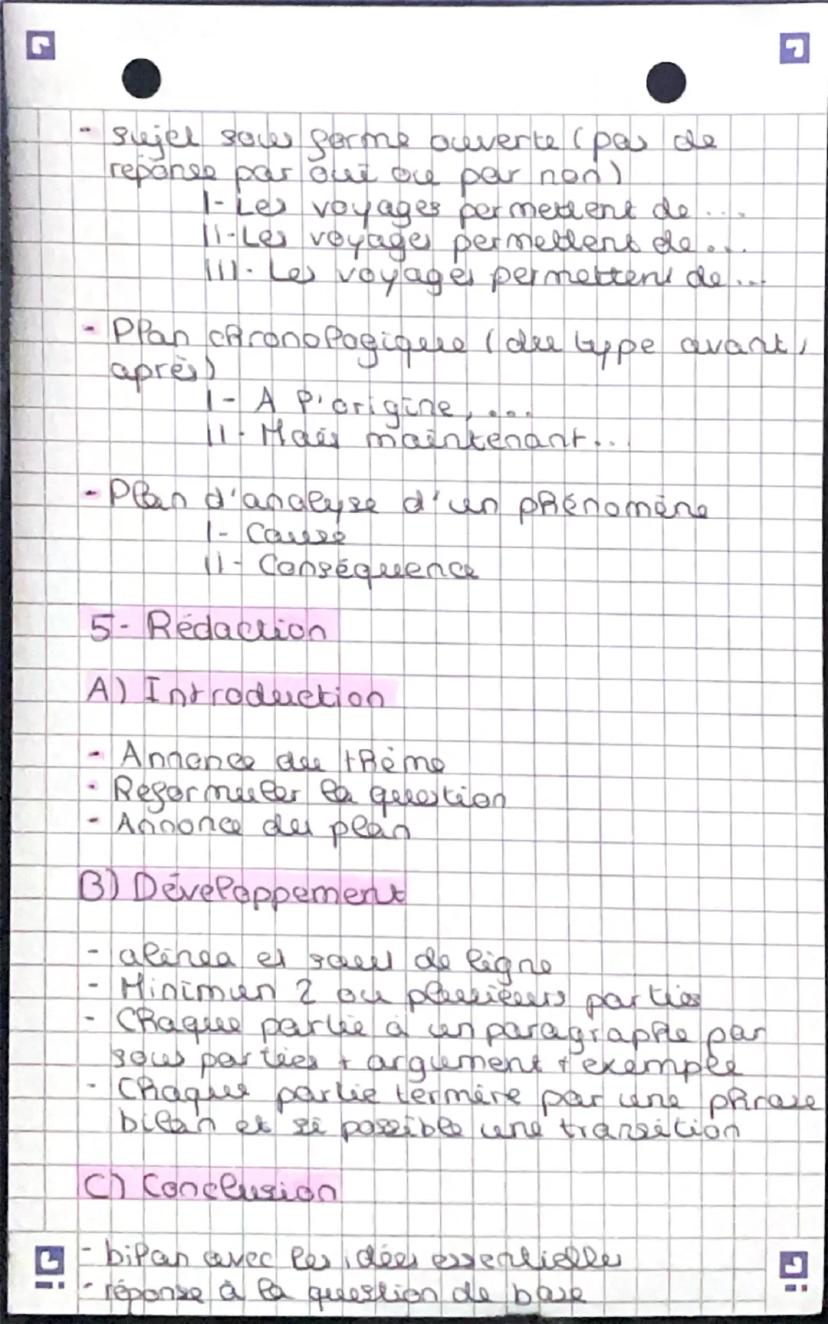 - sujet sous forme ouverte (pas de
réponse par oui ou par non)
I- Les voyages permettent de ...
II- Les voyages permettent de ...
III- Les voyages permettent de ...
- Plan chronologique (du type avant,
après)
I- A l'origine, ...
II- Mais maintenant...
- Plan d'analyse d'un phénomène
I- Cause
II- Conséquence
5- Rédaction
A) Introduction
- Annonce du thème
- Reformuler la question
- Annonce du plan
B) Développement
- alinéa et saut de ligne
- Minimun 2 ou plusieurs parties
- Chaque partie à un paragraphe par
sous parties + argument + exemple
- Chaque partie termine par une phrase
bilan et si possible une transition
C) Conclusion
- bilan avec les idées essentielle
- réponse à la question de base